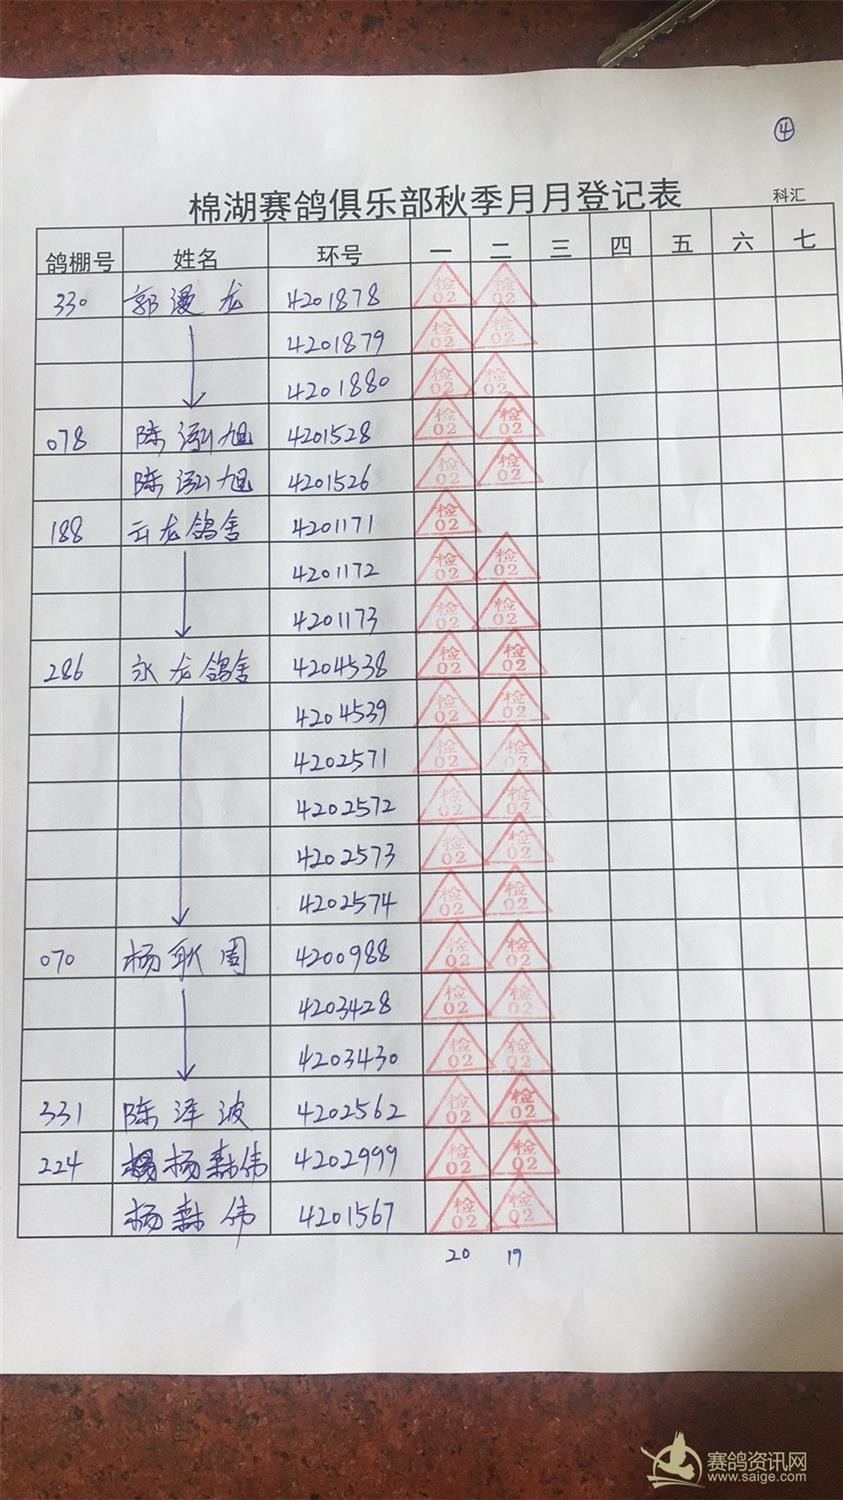 ④
棉湖赛鸽俱乐部秋季月月登记表 科汇
鸽棚号 姓名 环号 一 二 三 四 五 六 七
330 郭漫龙 4201878 检02 检02
4201879 检02 检02
4201880 检02 检02
078 陈泓旭 4201528 检02 检02
陈泓旭 4201526 检02 检02
188 云龙鸽舍 4201171 检02
4201172 检02 检02
4201173 检02 检02
286 永龙鸽舍 4204538 检02 检02
4204539 检02 检02
4202571 检02 检02
4202572 检02 检02
4202573 检02 检02
4202574 检02 检02
070 杨耿周 4200988 检02 检02
4203428 检02 检02
4203430 检02 检02
331 陈泽波 4202562 检02 检02
224 杨森伟 4202999 检02 检02
杨森伟 4201567 检02 检02
20 19
赛鸽资讯网
www.saige.com